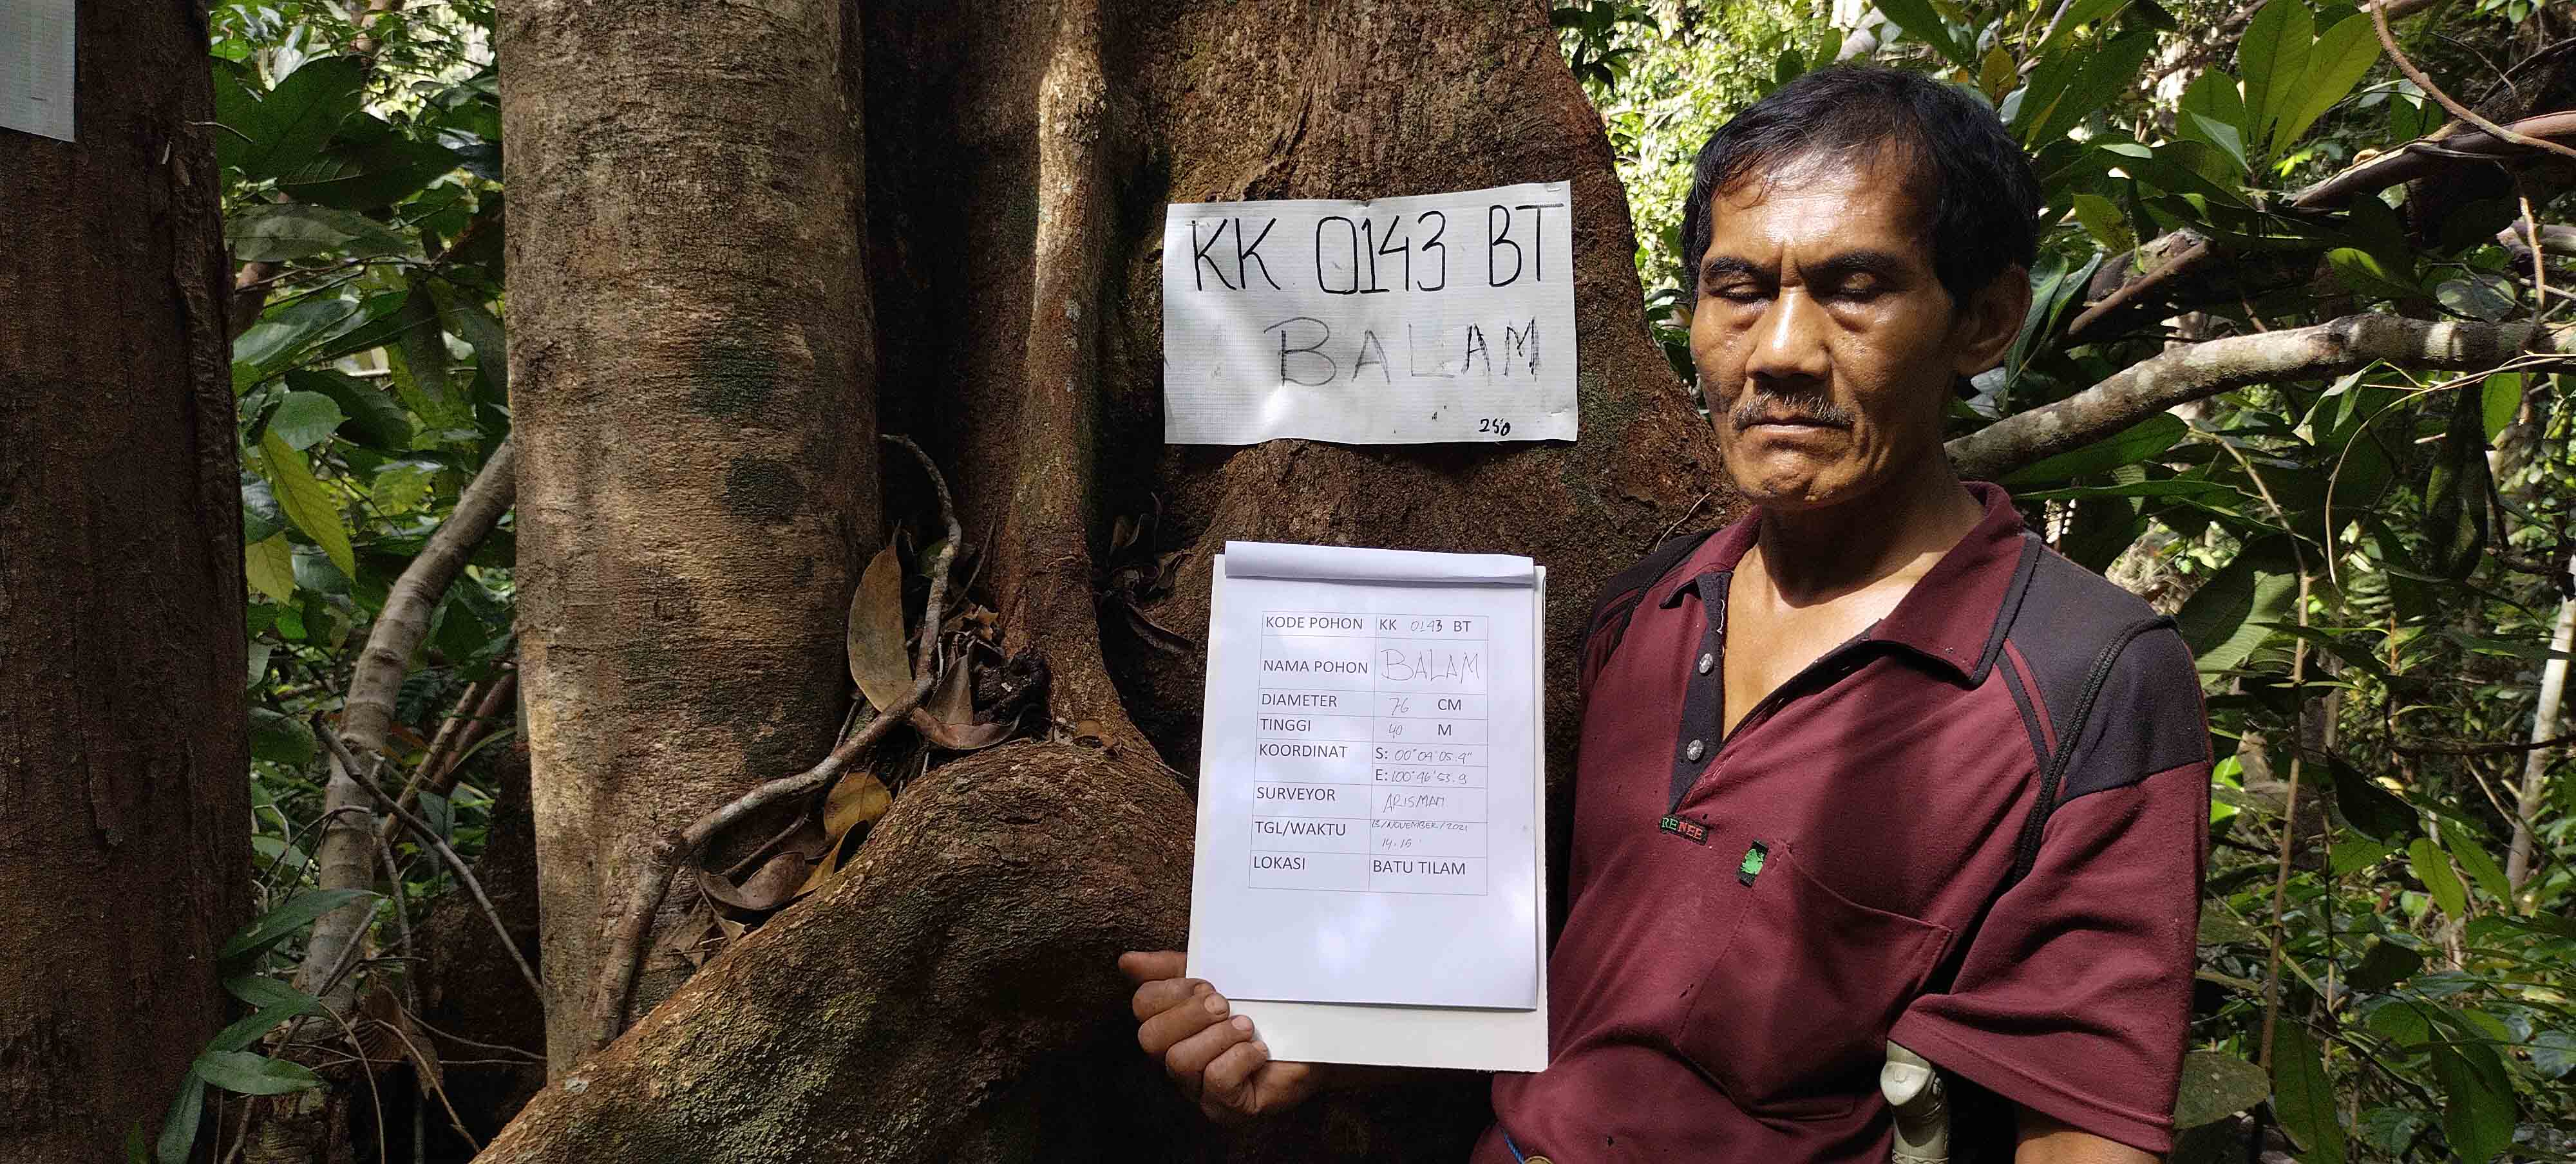 KK 0143 BT
BALAM
250
KODE POHON KK 0143 BT
NAMA POHON BALAM
DIAMETER 76 CM
TINGGI 40 M
KOORDINAT S: 00°04'05.4"
E: 100°46'53.9
SURVEYOR ARISMAN
TGL/WAKTU 13/NOVEMBER/2021
14.15
LOKASI BATU TILAM
RENEE